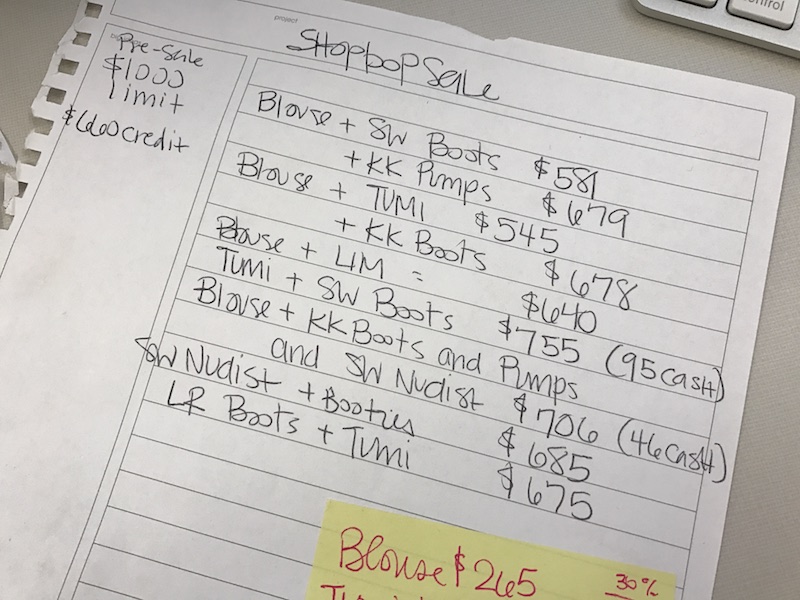 project
Shopbop Sale
Pre-Sale
$1000
limit
$660 credit
Blouse + SW Boots $581
+ KK Pumps $679
Blouse + TUMI $545
+ KK Boots $678
Blouse + LIM = $640
Tumi + SW Boots $755 (95 cash)
Blouse + KK Boots and Pumps
and SW Nudist $706 (46 cash)
SW Nudist + Booties $685
LR Boots + Tumi $675
Blouse $265 30%
control